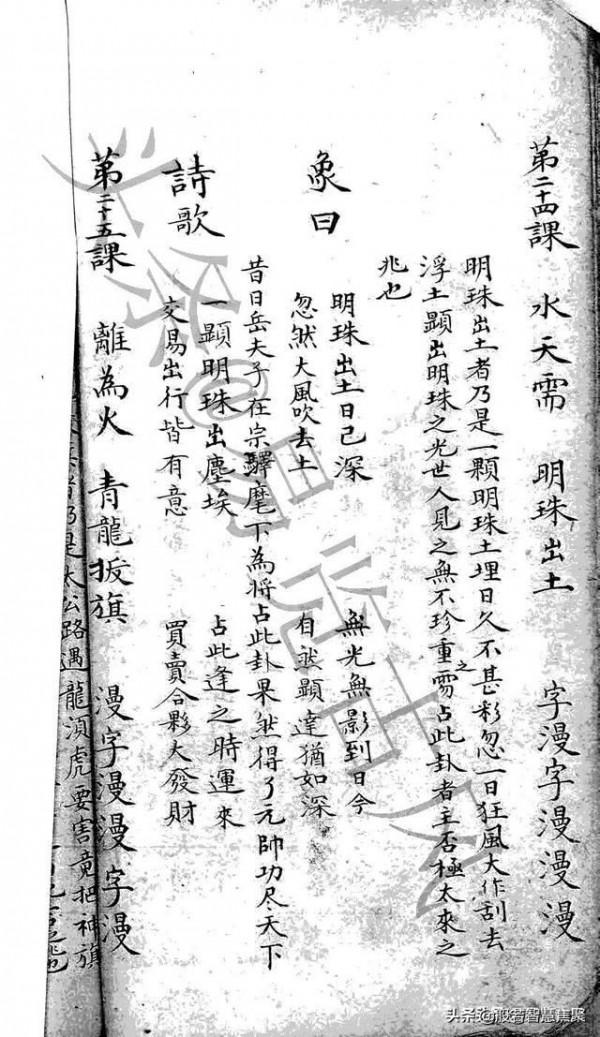 第二十四課 水天需 明珠出土 字漫字漫漫漫
明珠出土者乃是一顆明珠土埋日久不甚彩忽一日狂風大作刮去
浮土顯出明珠之光世人見之無不珍重之需占此卦者主否極太來之
兆也
象曰
明珠出土日已深 無光無影到日今
忽然大風吹去土 自然顯達猶如深
昔日岳夫子在宗驛麾下為將占此卦果然得了元帥功尽天下
詩歌
一顯明珠出塵埃 占此逢之時運來
交易出行皆有意 買賣合夥大發財
第二十五課 離為火 青龍扳旗 漫字漫漫字漫
者乃是太公路遇龍湏虎要害竟把神旗
头条@易学古风
头条@般若智慧焦聚